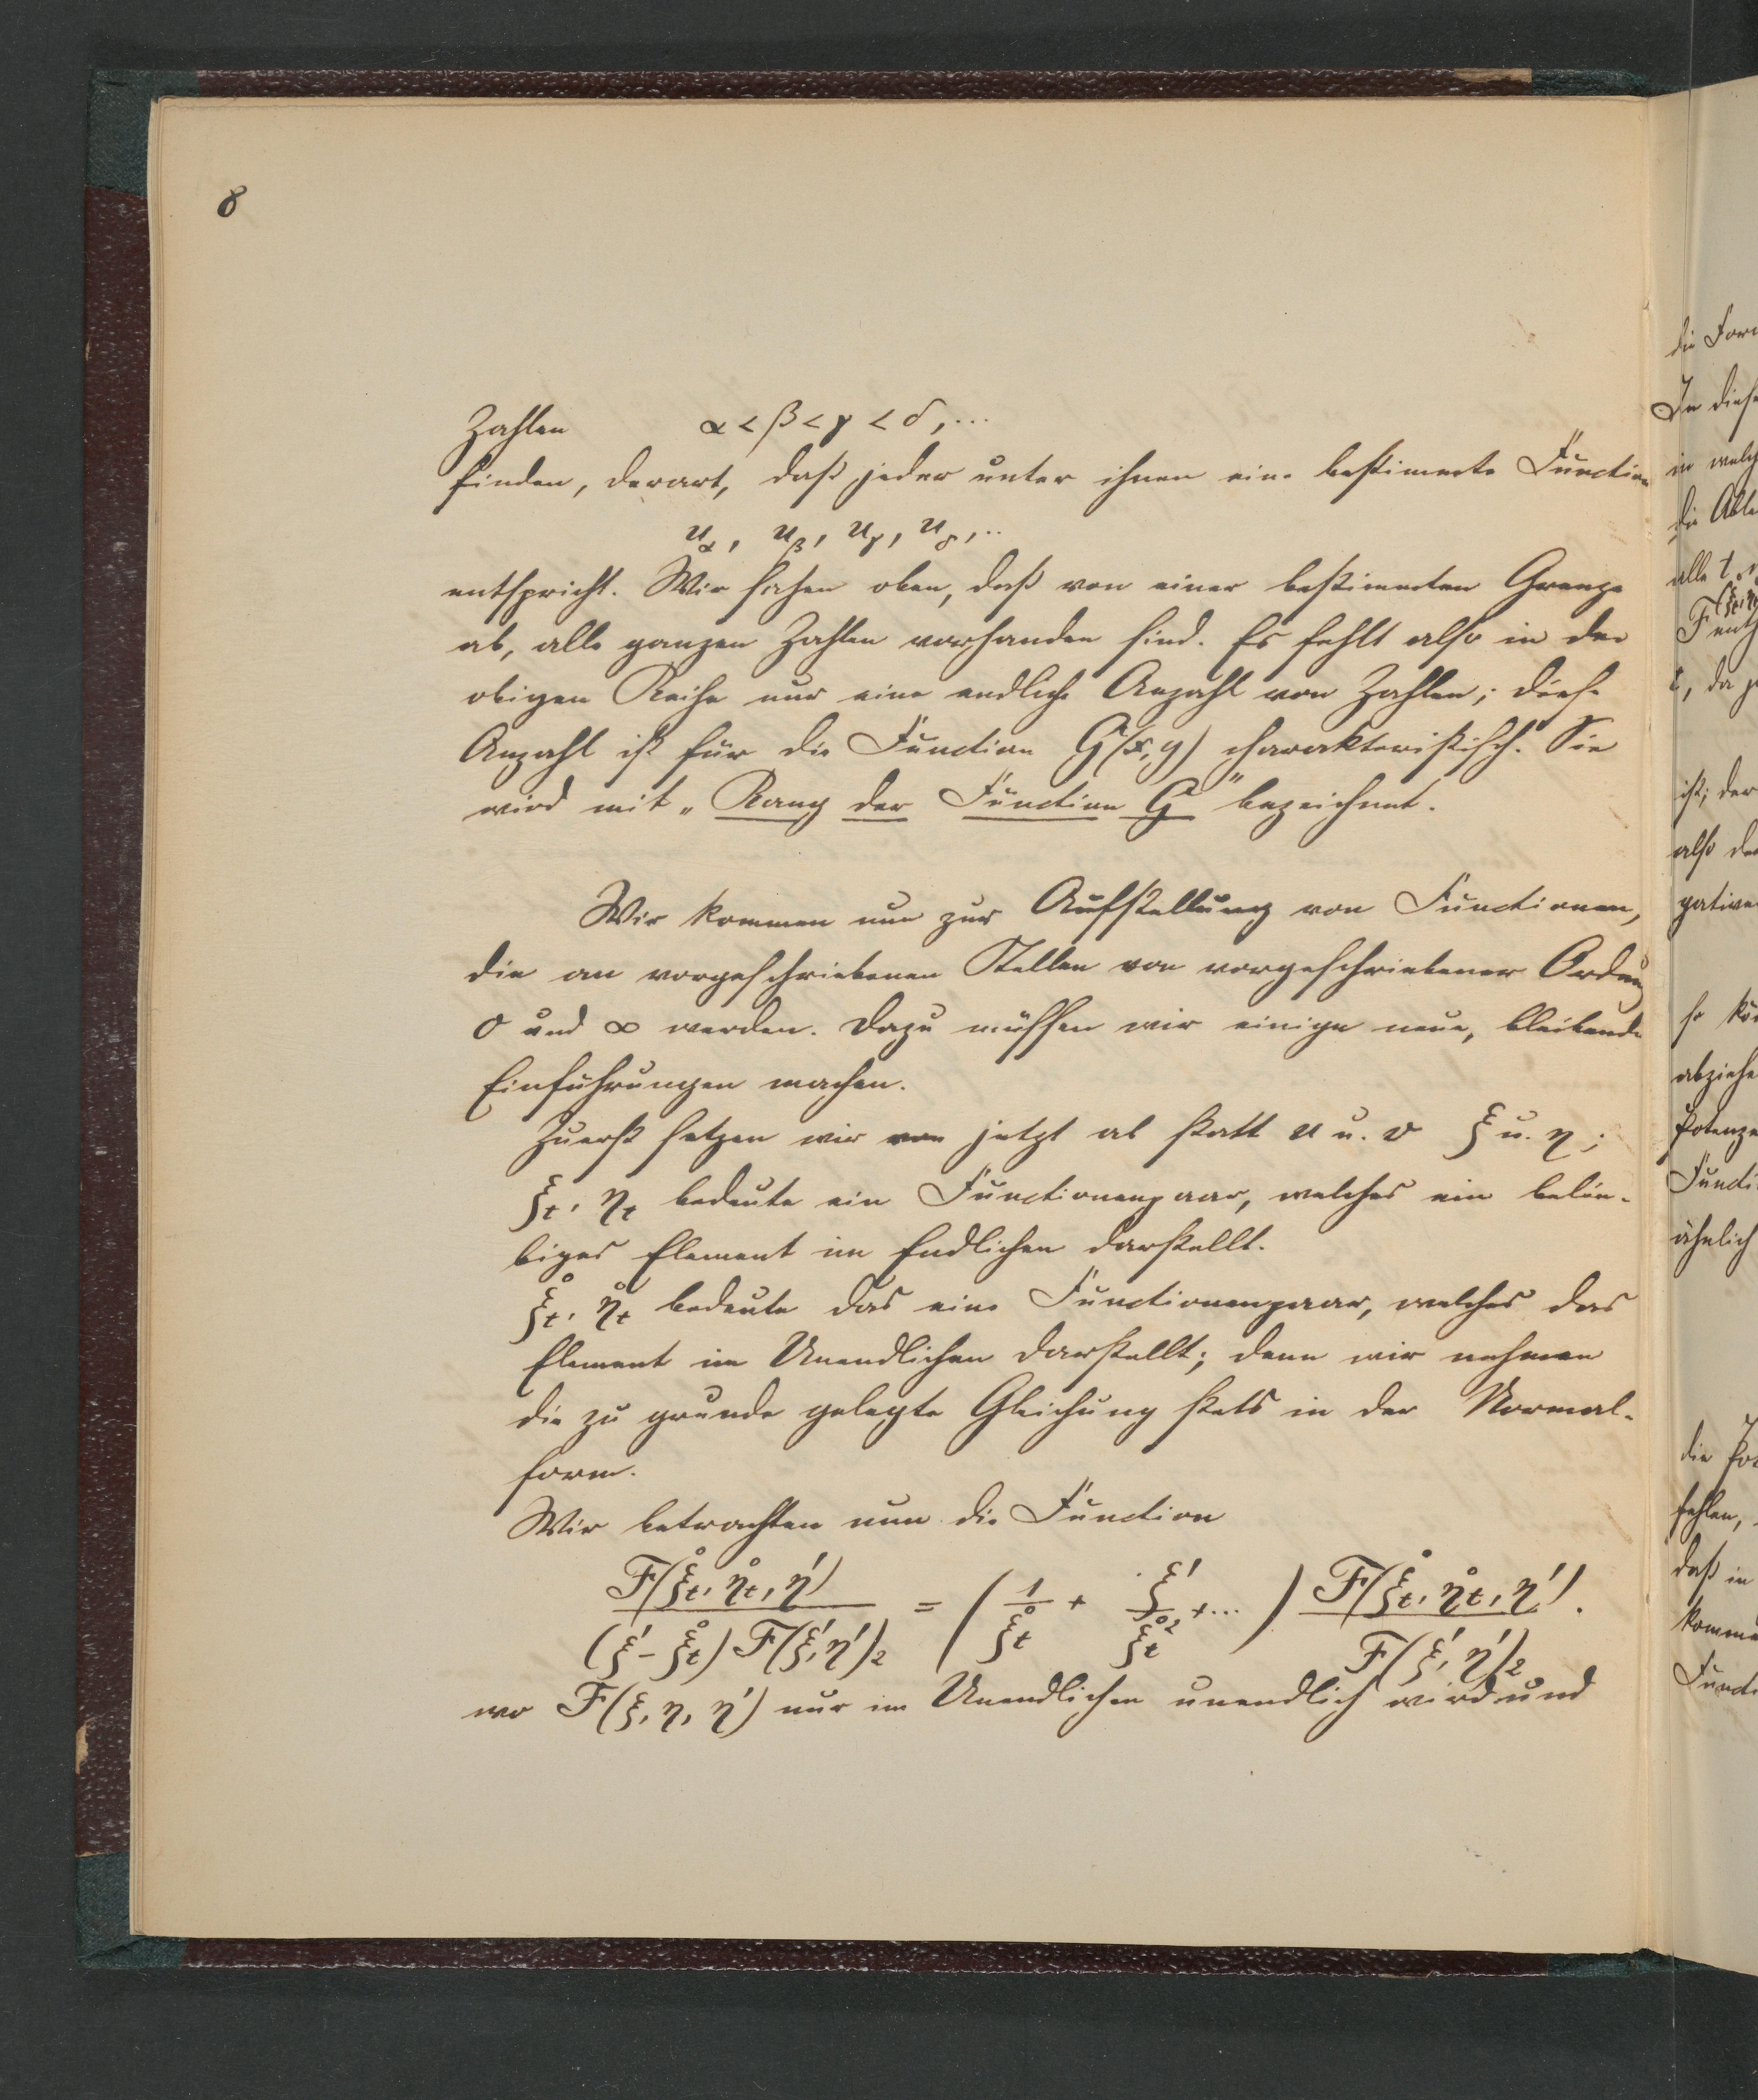 8
Zahlen α < β < γ < δ, ...
finden, derart, daß jeder unter ihnen eine bestimmte Function
u_α, u_β, u_γ, u_δ, ..
entspricht. Wir sahen oben, daß von einer bestimmten Grenze
ab, alle ganzen Zahlen vorhanden sind. Es fehlt also in der
obigen Reihe nur eine endliche Anzahl von Zahlen; diese
Anzahl ist für die Function G(x,y) charakteristisch. Sie
wird mit „Rang der Function G" bezeichnet.
Wir kommen nun zur Aufstellung von Functionen,
die an vorgeschriebenen Stellen von vorgeschriebener Ordnung
0 und ∞ werden. Dazu müssen wir einige neue, bleibende
Einführungen machen.
Zuerst setzen wir von jetzt ab statt u u. v ξ u. η;
ξ_t, η_t bedeute ein Functionenpaar, welches ein belie-
biges Element im Endlichen darstellt.
ξ̊_t, η̊_t bedeute das eine Functionenpaar, welches das
Element im Unendlichen darstellt; denn wir nehmen
die zu grunde gelegte Gleichung stets in der Normal-
form.
Wir betrachten nun die Function
F(ξ̊_t, η̊_t, η') / (ξ' - ξ̊_t) F(ξ', η')_2 = (1/ξ̊_t + ξ'/ξ̊_t² + ...) F(ξ̊_t, η̊_t, η') / F(ξ', η')_2 .
wo F(ξ, η, η') nur im Unendlichen unendlich wird und
die
In diese
in
die
alle t
t, da
ist; der
also
so
abziehe
Potenze
ähnlich
die
fehlen,
daß in